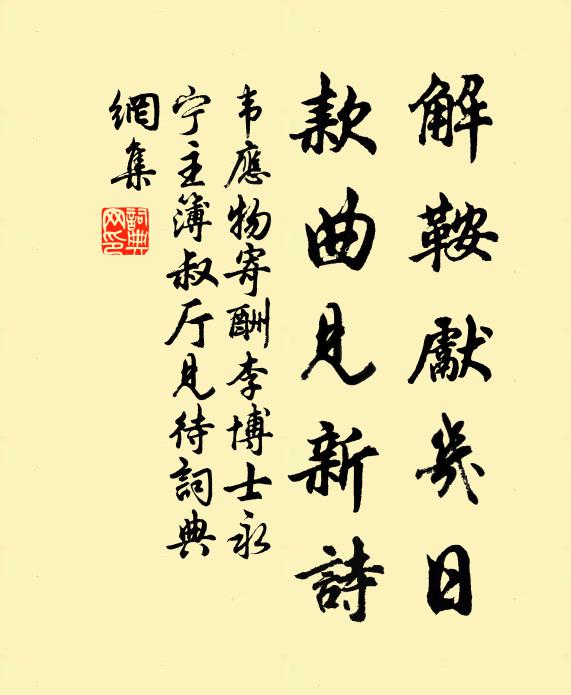 解鞍獻幾日
款曲見新詩
韦應物寄酬李博士永
宁主簿叔厅見待詞典
網集
詞典
网印